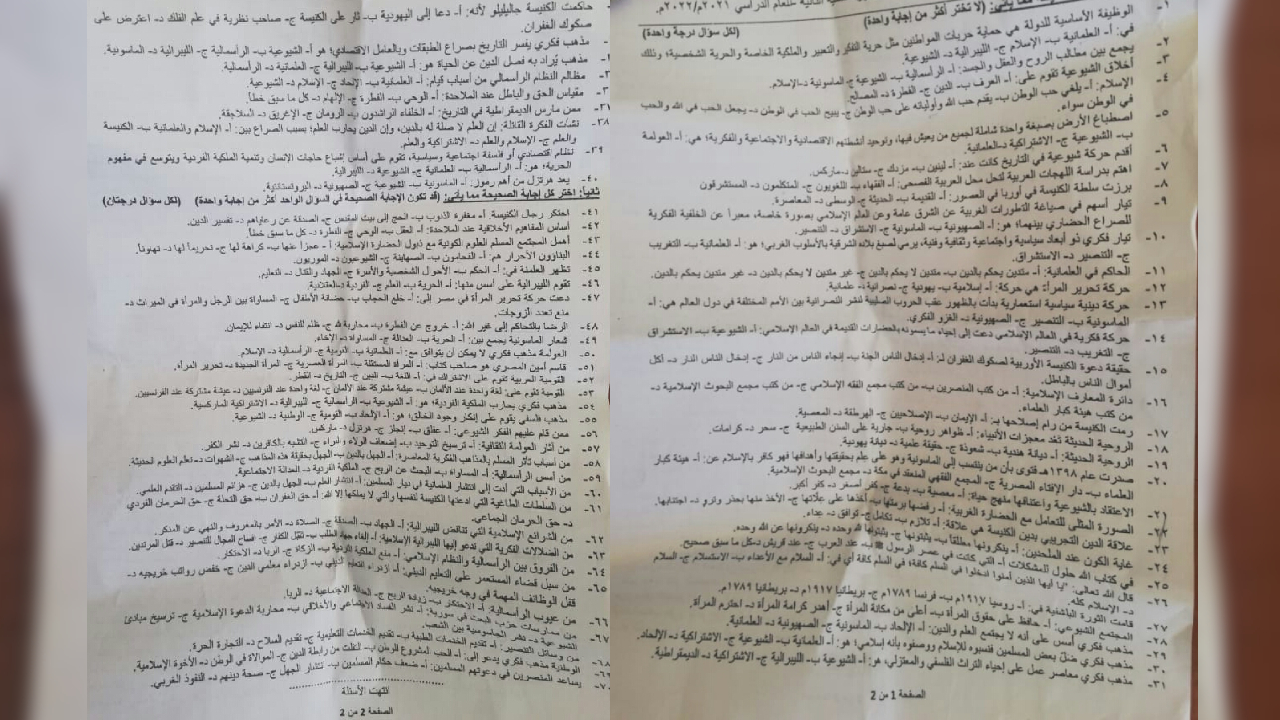 (لكل سؤال درجة واحدة)
١- الوظيفة الأساسية للدولة هي حماية حريات المواطنين مثل حرية الفكر والتعبير والملكية الخاصة والحرية الشخصية؛ وذلك
في: أ- العلمانية ب- الإسلام ج- الليبرالية د- الشيوعية.
٢- يجمع بين مطالب الروح والعقل والجسد: أ- الرأسمالية ب- الشيوعية ج- الماسونية د- الإسلام.
٣- أخلاق الشيوعية تقوم على: أ- العرف ب- الدين ج- الفطرة د- المصالح.
٤- الإسلام: أ- يلغي حب الوطن ب- يقدم حب الله وأوليائه على حب الوطن ج- يبيح الحب في الوطن د- يجعل الحب في الله والحب
في الوطن سواء.
٥- اصطباغ الأرض بصبغة واحدة شاملة لجميع من يعيش فيها، وتوحيد أنشطتهم الاقتصادية والاجتماعية والفكرية؛ هي: أ- العولمة
ب- الشيوعية ج- الاشتراكية د- العلمانية.
٦- أقدم حركة شيوعية في التاريخ كانت عند: أ- لينين ب- مزدك ج- ستالين د- ماركس.
٧- اهتم بدراسة اللهجات العربية لتحل محل العربية الفصحى: أ- الفقهاء ب- اللغويون ج- المتكلمون د- المستشرقون
٨- برزت سلطة الكنيسة في أوربا في العصور: أ- القديمة ب- الحديثة ج- الوسطى د- المعاصرة.
٩- تيار أسهم في صياغة التطورات الغربية عن الشرق عامة وعن العالم الإسلامي بصورة خاصة، معبراً عن الخلفية الفكرية
للصراع الحضاري بينهما؛ هو: أ- الصهيونية ب- الماسونية ج- الاستشراق د- التنصير.
١٠- تيار فكري ذو أبعاد سياسية واجتماعية وثقافية وفنية، يرمي لصبغ بلاد الشرقية بالأسلوب الغربي؛ هو: أ- العلمانية ب- التغريب
ج- التنصير د- الاستشراق.
١١- الحاكم في العلمانية: أ- متدين يحكم بالدين ب- متدين لا يحكم بالدين ج- غير متدين لا يحكم بالدين د- غير متدين يحكم بالدين.
١٢- حركة تحرير المرأة؛ هي حركة: أ- إسلامية ب- يهودية ج- نصرانية د- علمانية.
١٣- حركة دينية سياسية استعمارية بدأت بالظهور عقب الحروب الصليبية لنشر النصرانية بين الأمم المختلفة في دول العالم هي: أ-
الماسونية ب- التنصير ج- الصهيونية د- الغزو الفكري.
١٤- حركة فكرية في العالم الإسلامي دعت إلى إحياء ما يسمونه بالحضارات القديمة في العالم الإسلامي: أ- الشيوعية ب- الاستشراق
ج- التغريب د- التنصير.
١٥- حقيقة دعوة الكنيسة الأوربية لصكوك الغفران لـ: أ- إدخال الناس الجنة ب- إنجاء الناس من النار ج- إدخال الناس النار د- أكل
أموال الناس بالباطل.
١٦- دائرة المعارف الإسلامية: أ- من كتب المنصرين ب- من كتب مجمع الفقه الإسلامي ج- من كتب مجمع البحوث الإسلامية د-
من كتب هيئة كبار العلماء.
١٧- رمت الكنيسة من رام إصلاحها بـ: أ- الإيمان ب- الإصلاحيين ج- الهرطقة د- المعصية.
١٨- الروحية الحديثة تعُد معجزات الأنبياء: أ- ظواهر روحية ب- جارية على السنن الطبيعية ج- سحر د- كرامات.
١٩- الروحية الحديثة: أ- ديانة هندية ب- شعوذة ج- حقيقة علمية د- ديانة يهودية.
٢٠- صدرت عام ١٣٩٨هـ فتوى بأن من ينتسب إلى الماسونية وهو على علم بحقيقتها وأهدافها فهو كافر بالإسلام عن: أ- هيئة كبار
العلماء ب- دار الإفتاء المصرية ج- المجمع الفقهي المنعقد في مكة د- مجمع البحوث الإسلامية.
٢١- الاعتقاد بالشيوعية واعتناقها منهج حياة: أ- معصية ب- بدعة ج- كفر أصغر د- كفر أكبر.
٢٢- الصورة المثلى للتعامل مع الحضارة الغربية: أ- رفضها برمتها ب- أخذها على علّاتها ج- الأخذ منها بحذر وترو د- اجتنابها.
٢٣- علاقة الدين التجريبي بدين الكنيسة هي علاقة: أ- تلازم ب- تكامل ج- توافق د- عداء.
٢٤- غاية الكون عند الملحدين: أ- ينكرونها مطلقا ب- يثبتونها ج- يثبتونها لله وحده د- ينكرونها عن الله وحده.
٢٥- في كتاب الله حلول المشكلات أ- التي كانت في عصر الرسول ﷺ ب- عند العرب ج- عند قريش د- كل ما سبق صحيح.
٢٦- قال الله تعالى: "يا أيها الذين آمنوا ادخلوا في السلم كافة"؛ في السلم كافة أي في: أ- السلام مع الأعداء ب- الاستسلام ج- السلام
د- الإسلام كله.
٢٧- قامت الثورة البلشفية في: أ- روسيا ١٩١٧م ب- فرنسا ١٧٨٩م ج- بريطانيا ١٩١٧م د- بريطانيا ١٧٨٩م.
٢٨- المجتمع الشيوعي: أ- حافظ على حقوق المرأة ب- أعلى من مكانة المرأة ج- أهدر كرامة المرأة د- احترم المرأة.
٢٩- مذهب فكري أسس على أنه لا يجتمع العلم والدين: أ- الإلحاد ب- الماسونية ج- الصهيونية د- العلمانية.
٣٠- مذهب فكري ضلّ بعض المسلمين فنسبوه للإسلام ووصفوه بأنه إسلامي؛ هو: أ- العلمانية ب- الشيوعية ج- الاشتراكية د- الإلحاد.
٣١- مذهب فكري معاصر عمل على إحياء التراث الفلسفي والمعتزلي، هو: أ- الشيوعية ب- الليبرالية ج- الاشتراكية د- الديمقراطية.
الصفحة 1 من 2
حاكمت الكنيسة جاليليلو لأنه: أ- دعا إلى اليهودية ب- ثار على الكنيسة ج- صاحب نظرية في علم الفلك د- اعترض على
صكوك الغفران.
مذهب فكري يفسر التاريخ بصراع الطبقات وبالعامل الاقتصادي؛ هو: أ- الشيوعية ب- الرأسمالية ج- الليبرالية د- الماسونية.
مذهب يُراد به فصل الدين عن الحياة هو: أ- الشيوعية ب- الليبرالية ج- العلمانية د- الرأسمالية.
مظالم النظام الرأسمالي من أسباب قيام: أ- العلمانية ب- الإلحاد ج- الإسلام د- الشيوعية.
مقياس الحق والباطل عند الملاحدة: أ- الوحي ب- الفطرة ج- الإلهام د- كل ما سبق خطأ.
٣٧- ممن مارس الديمقراطية في التاريخ: أ- الخلفاء الراشدون ب- الرومان ج- الإغريق د- السلاجقة.
٣٨- نشأت الفكرة القائلة: إن العلم لا صلة له بالدين، وإن الدين يحارب العلم؛ بسبب الصراع بين: أ- الإسلام والعلمانية ب- الكنيسة
والعلم ج- الإسلام والعلم د- الاشتراكية والعلم.
٣٩- نظام اقتصادي ذو فلسفة اجتماعية وسياسية، تقوم على أساس إشباع حاجات الإنسان وتنمية الملكية الفردية ويتوسع في مفهوم
الحرية؛ هو: أ- الرأسمالية ب- العلمانية ج- الشيوعية د- الليبرالية.
٤٠- يعد هرتزل من أهم رموز: أ- الماسونية ب- الشيوعية ج- الصهيونية د- البروتستانتية.
ثانياً: اختر كل إجابة صحيحة مما يأتي: (قد تكون الإجابة الصحيحة في السؤال الواحد أكثر من إجابة واحدة) (لكل سؤال درجتان)
٤١- احتكر رجال الكنيسة أ- مغفرة الذنوب ب- الحج إلى بيت المقدس ج- الصدقة عن رعاياهم د- تفسير الدين.
٤٢- أساس المفاهيم الأخلاقية عند الملاحدة: أ- العقل ب- الوحي ج- الفطرة د- كل ما سبق خطأ.
٤٣- أهمل المجتمع المسلم العلوم الكونية مع ذبول الحضارة الإسلامية: أ- عجزاً عنها ب- كراهة لها ج- تحريماً لها د- تهاوناً.
٤٤- البناؤون الأحرار هم: أ- الفحامون ب- الصهاينة ج- الشيوعيون د- الموريون.
٤٥- تظهر العلمنة في: أ- الحكم ب- الأحوال الشخصية والأسرة ج- الجهاد والقتال د- التعليم.
٤٦- تقوم الليبرالية على أسس منها: أ- الحرية ب- العلم ج- الفردية د- العقلانية.
٤٧- دعت حركة تحرير المرأة في مصر إلى: أ- خلع الحجاب ب- حضانة الأطفال ج- المساواة بين الرجل والمرأة في الميراث د-
منع تعدد الزوجات.
٤٨- الرضا بالتحاكم إلى غير الله: أ- خروج عن الفطرة ب- محاربة لله ج- ظلم للنفس د- انتفاء للإيمان.
٤٩- شعار الماسونية يجمع بين: أ- الحرية ب- العدالة ج- المساواة د- الإخاء.
٥٠- العولمة مذهب فكري لا يمكن أن يتوافق مع: أ- العلمانية ب- القومية ج- الرأسمالية د- الإسلام.
٥١- قاسم أمين المصري هو صاحب كتاب: أ- المرأة المستقلة ب- المرأة العصرية ج- المرأة الجديدة د- تحرير المرأة.
٥٢- القومية العربية تقوم على الاشتراك في: أ- اللغة ب- الدين ج- التاريخ د- القطر.
٥٣- القومية تقوم على: لغة واحدة عند الألمان ب- عيشة مشتركة عند الألمان ج- لغة واحدة عند الفرنسيين د- عيشة مشتركة عند الفرنسيين.
٥٤- مذهب فكري يحارب الملكية الفردية؛ هو: أ- الشيوعية ب- الرأسمالية ج- الليبرالية د- الاشتراكية الماركسية.
٥٥- مذهب فلسفي يقوم على إنكار وجود الخالق؛ هو: أ- الإلحاد ب- القومية ج- الوطنية د- الشيوعية.
٥٦- ممن قام عليهم الفكر الشيوعي: أ- عفلق ب- إنجلز ج- هرتزل د- ماركس.
٥٧- من آثار العولمة الثقافية: أ- ترسيخ التوحيد ب- إضعاف الولاء والبراء ج- التشبه بالكافرين د- نشر الكفر.
٥٨- من أسباب تأثر المسلم بالمذاهب الفكرية المعاصرة: أ- الجهل بالدين ب- الجهل بحقيقة هذه المذاهب ج- الشهوات د- تعلم العلوم الحديثة.
٥٩- من أسس الرأسمالية: أ- المساواة ب- البحث عن الربح ج- الملكية الفردية د- العدالة الاجتماعية.
٦٠- من الأسباب التي أدت إلى انتشار العلمانية في ديار المسلمين: أ- انتشار العلم ب- الجهل بالدين ج- هزائم المسلمين د- التقدم العلمي.
٦١- من السلطات الطاغية التي ادعتها الكنيسة لنفسها والتي لا يملكها إلا الله: أ- حق الغفران ب- حق التحلة ج- حق الحرمان الفردي
د- حق الحرمان الجماعي.
٦٢- من الشرائع الإسلامية التي تناقض الليبرالية: أ- الجهاد ب- الصدقة ج- الصلاة د- الأمر بالمعروف والنهي عن المنكر.
٦٣- من الضلالات الفكرية التي تدعو إليها الليبرالية الإسلامية: أ- إلغاء جهاد الطلب ب- قتل الكفار ج- إفساح المجال للتنصير د- قتل المرتدين.
٦٤- من الفروق بين الرأسمالية والنظام الإسلامي: أ- منع الملكية الفردية ب- الزكاة ج- الربا د- الاحتكار.
٦٥- من سبل قضاء المستعمر على التعليم الديني: أ- ازدراء التعليم الديني ب- ازدراء معلمي الدين ج- خفض رواتب خريجيه د-
قفل الوظائف المهمة في وجه خريجيه.
٦٦- من عيوب الرأسمالية: أ- الاحتكار ب- زيادة الربح ج- العدالة الاجتماعية د- الربا.
٦٧- من ممارسات حزب البعث في سورية: أ- نشر الفساد الاجتماعي والأخلاقي ب- محاربة الدعوة الإسلامية ج- ترسيخ مبادئ
الشيوعية د- نشر الجاسوسية بين الشعب.
٦٨- من وسائل التنصير: أ- تقديم الخدمات الطبية ب- تقديم الخدمات التعليمية ج- تقديم السلاح د- التجارة الحرة.
الوطنية مذهب فكري يدعو إلى: أ- الحب المشروع للوطن ب- التفلت من رابطة الدين ج- الموالاة في الوطن د- الأخوة الإسلامية.
يساعد المنصرين في دعوتهم المسلمين: أ- ضعف حكام المسلمين ب- انتشار الجهل ج- صحة دينهم د- النفوذ الغربي.
انتهت الأسئلة
الصفحة 2 من 2